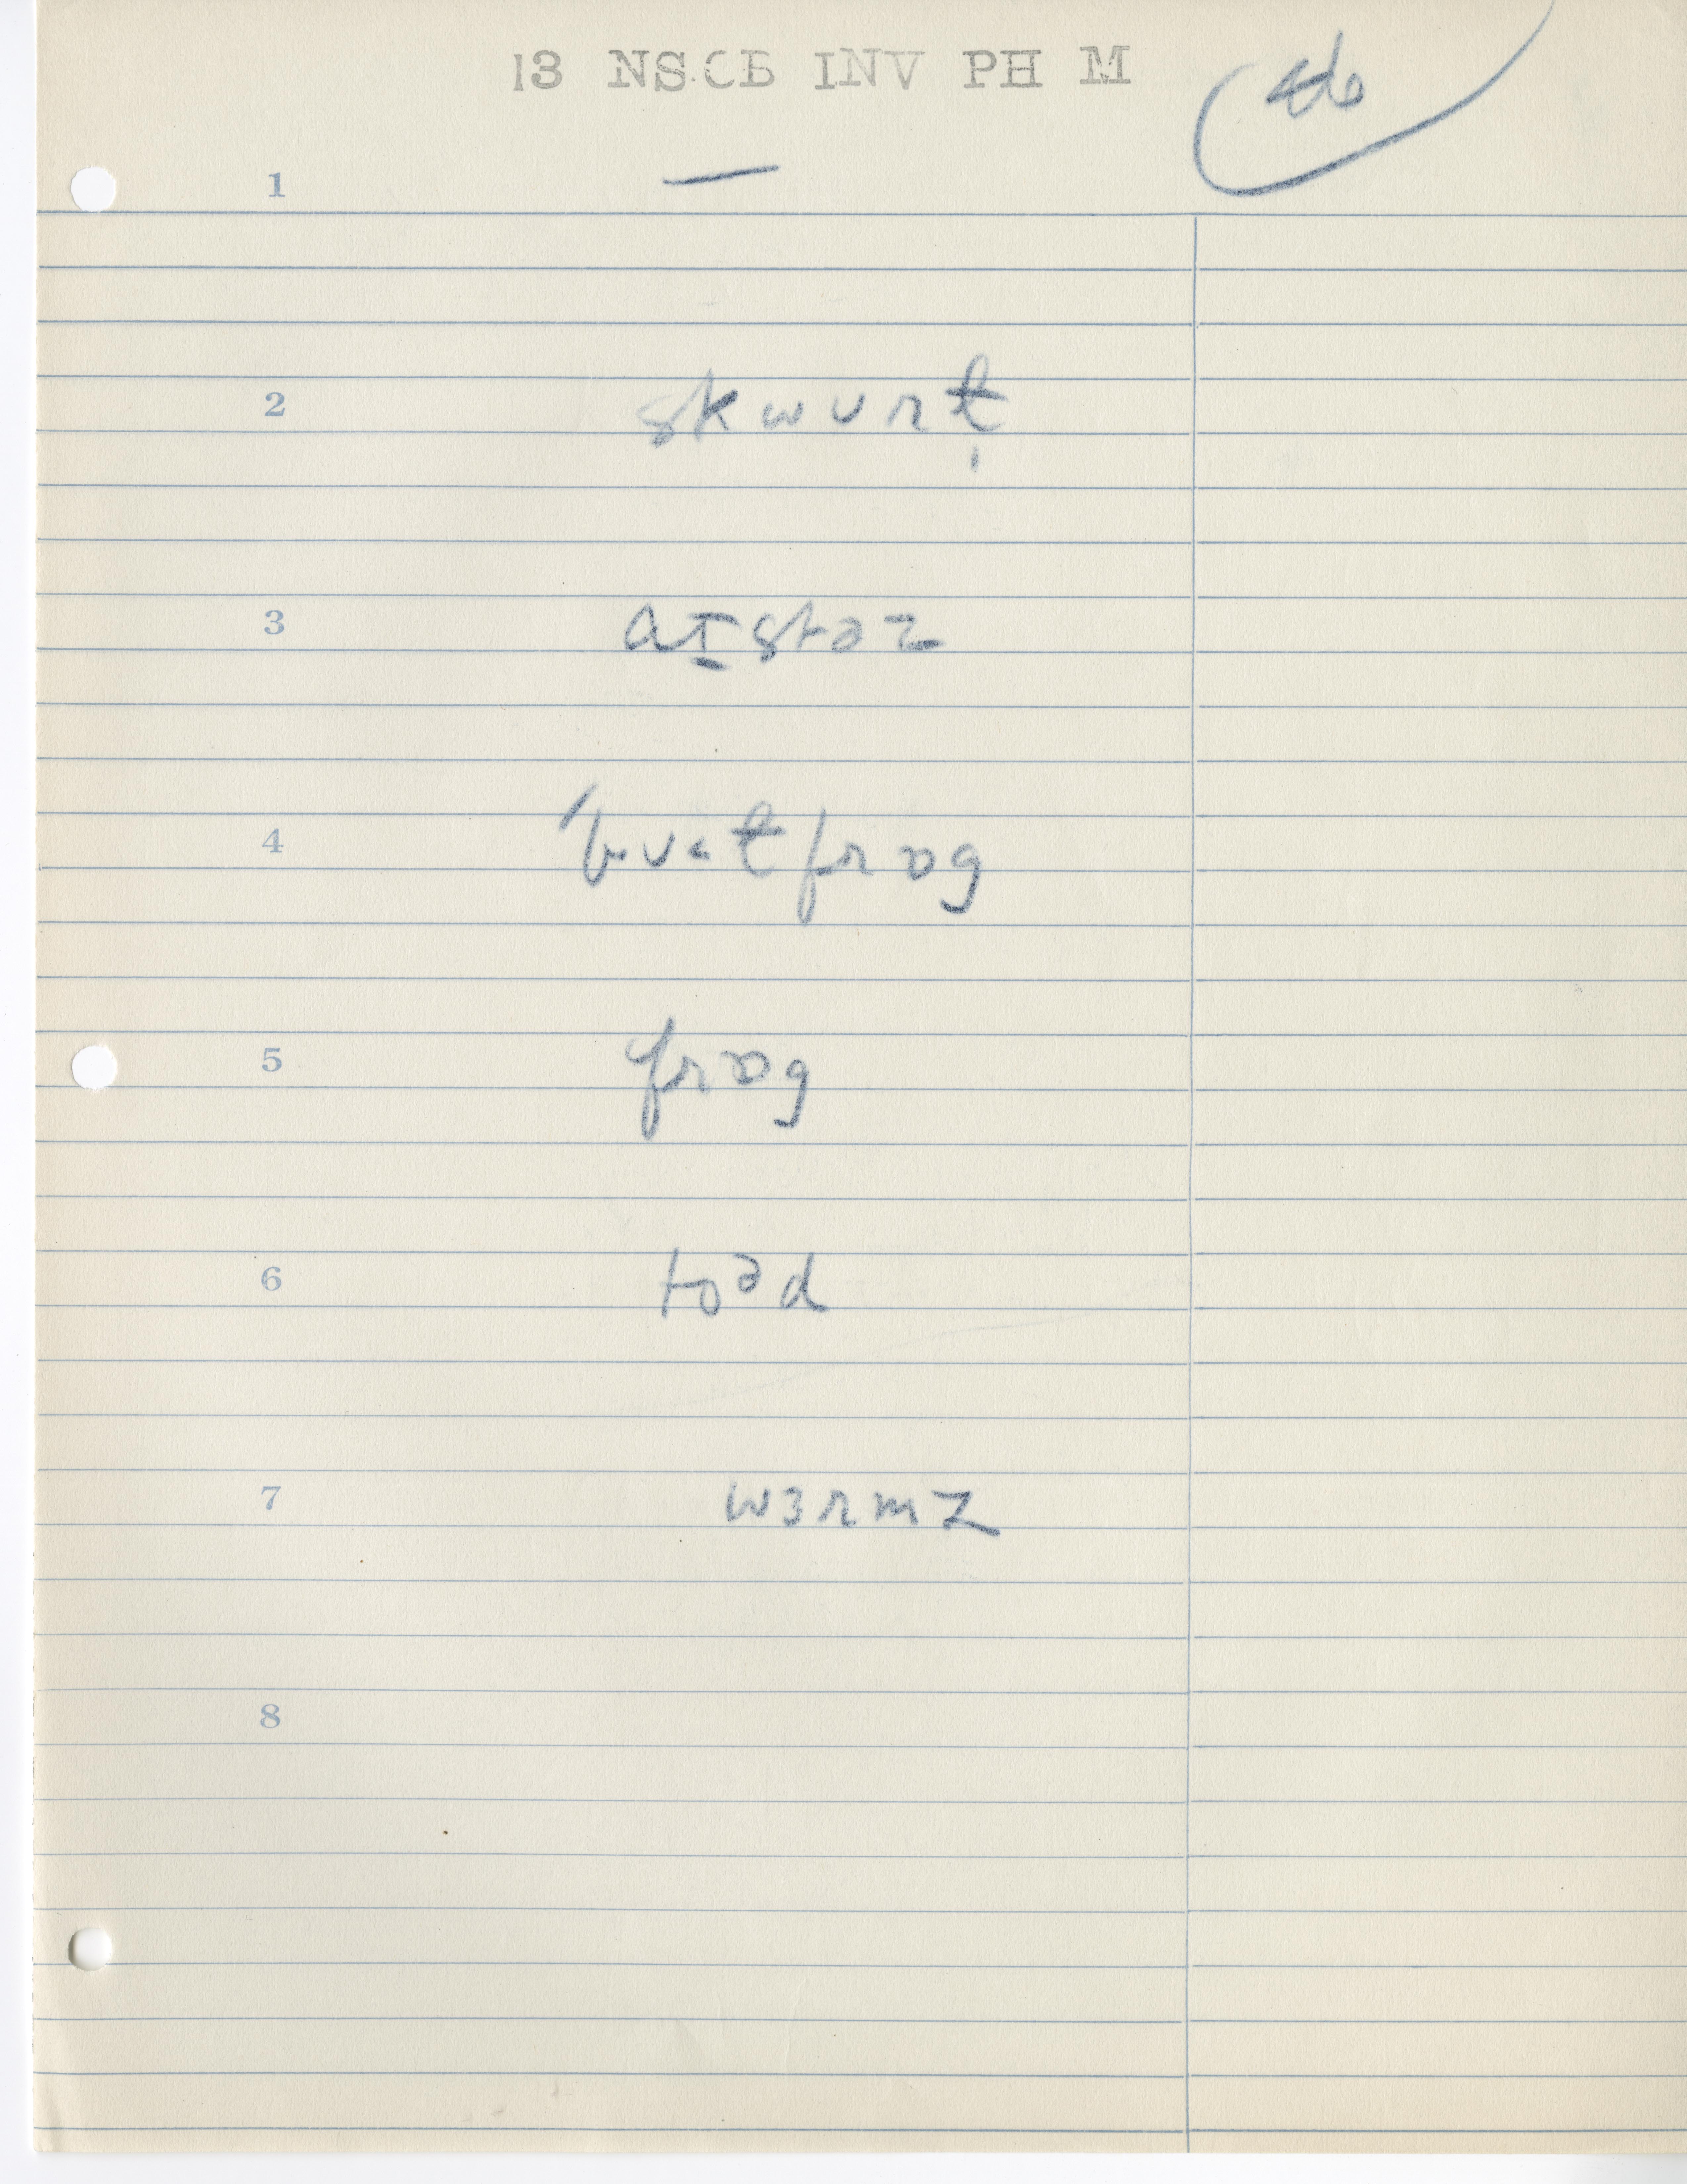 13 NSCB INV PH M
46
1 —
2 skwʊrɫ̩
3 ɑɪstəz
4 ˈbʊ˂ɫfrɒg
5 frɒg
6 toᵊd
7 wɜrmz
8